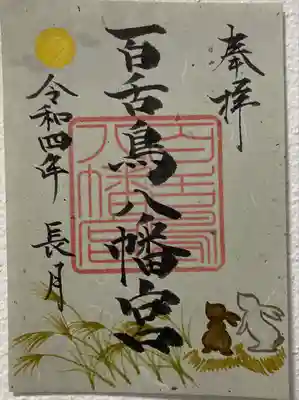 奉拝
百舌鳥八幡宮
令和四年 長月
百舌鳥
八幡宮